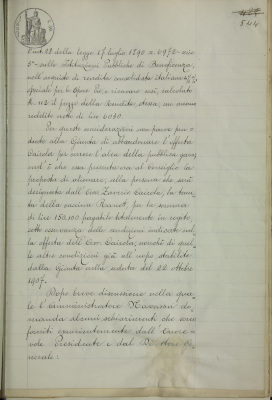 l'art. 28 della legge 17 luglio 1890 n. 6972 sul-
le Istituzioni Pubbliche di Beneficenza,
nell'acquisto di rendita consolidata italiana
speciale per le Opere Pie, e ricavare così, calcolato
a 112 il prezzo della rendita stessa, un annuo
reddito netto di lire
Per queste considerazioni non parve pru-
dente alla Giunta di abbandonare l'offerta
Cairola per correre l'alea della pubblica gara
ed è che essa presenta ora al consiglio la
proposta di alienare, alla persona che sarà
designata dall' Avv. Cairola, la tenu-
ta della cascina per la somma
di lire 150,100 pagabile totalmente in rogito,
sotto osservanza delle condizioni indicate nel-
la offerta dell' Avv. Cairola, nonchè di quel-
le altre condizioni già all'uopo stabilite
dalla Giunta nella seduta del 22 ottobre
1907.
Dopo breve discussione nella qua-
le l'amministratore Navarra do-
manda alcuni schiarimenti che sono
forniti esaurientemente dall' Onore-
vole Presidente e dal Direttore Ge-
nerale: